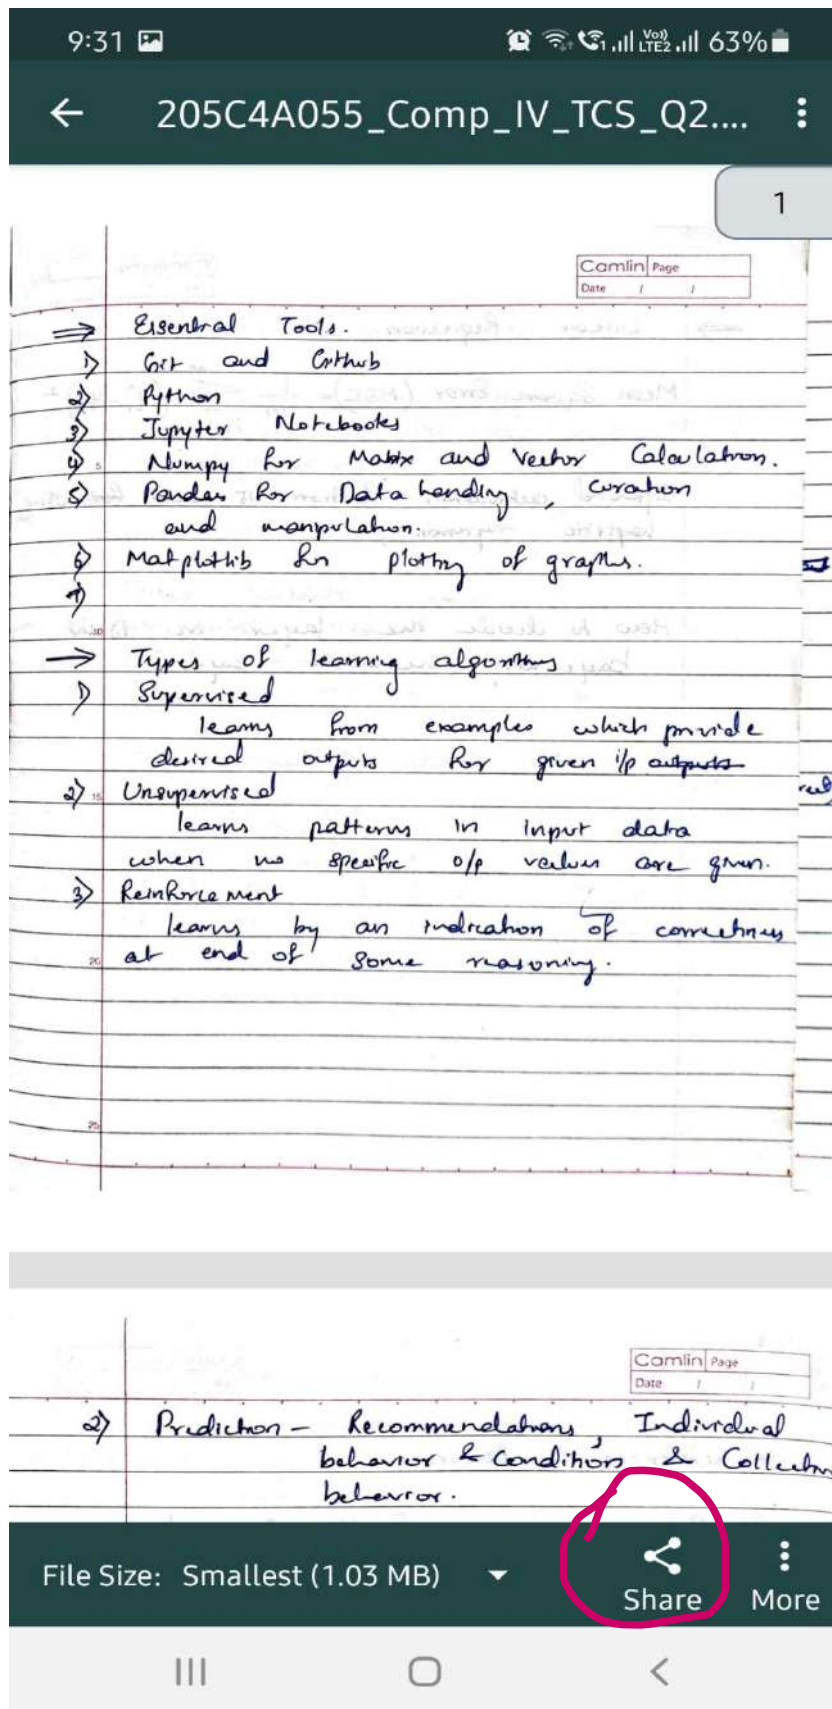 9:31
Vo))
LTE2
63%
205C4A055_Comp_IV_TCS_Q2....
1
Camlin Page
Date / /
⇒ Essential Tools.
1) Git and Github
2) Python
3) Jupyter Notebooks
4) Numpy for Matrix and Vector Calculation.
5) Pandas for Data handling, curation
and manipulation.
6) Matplotlib for plotting of graphs.
7)
→ Types of learning algorithms
1) Supervised
learns from examples which provide
desired outputs for given i/p outputs
2) Unsupervised
learns patterns in input data
when no specific o/p values are given.
3) Reinforcement
learns by an indication of correctness
at end of some reasoning.
Camlin Page
Date / /
2) Prediction - Recommendations, Individual
behavior & Conditions & Collectiv
behavior.
File Size: Smallest (1.03 MB)
Share
More